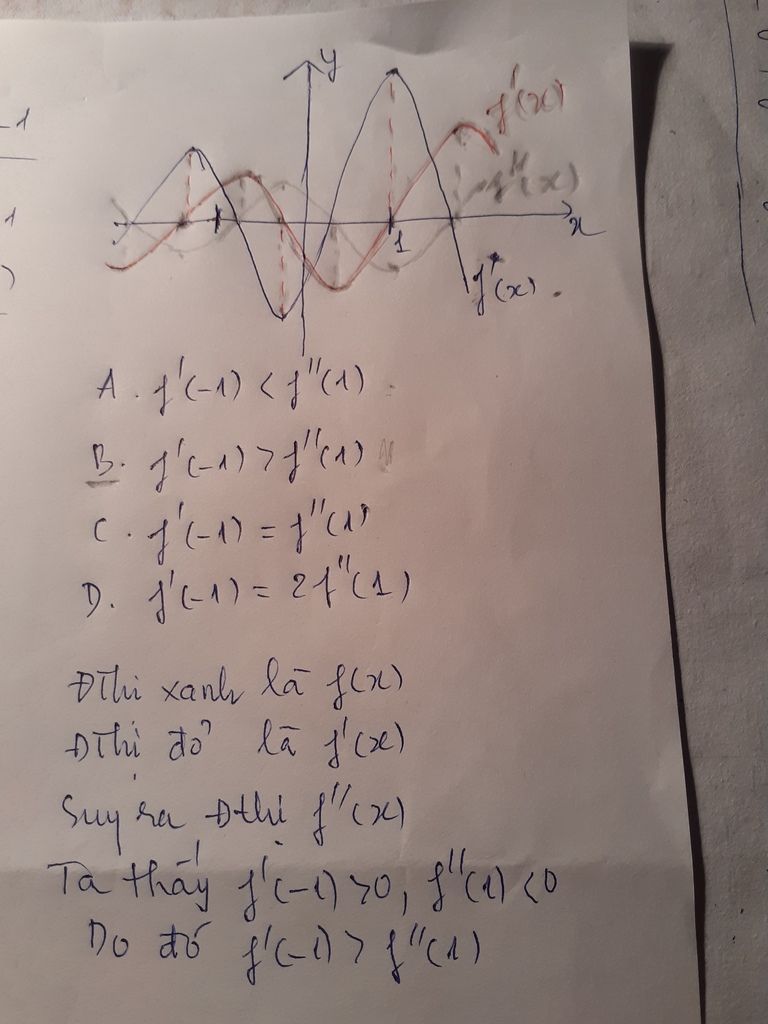 y
f'(x)
f''(x)
1
x
f(x).
A. f'(-1) < f''(1)
B. f'(-1) > f''(1)
C. f'(-1) = f''(1)
D. f'(-1) = 2f''(1)
Đthị xanh là f(x)
Đthị đỏ là f'(x)
Suy ra Đthị f''(x)
Ta thấy f'(-1) >0, f''(1) <0
Do đó f'(-1) > f''(1)
-1
1
)